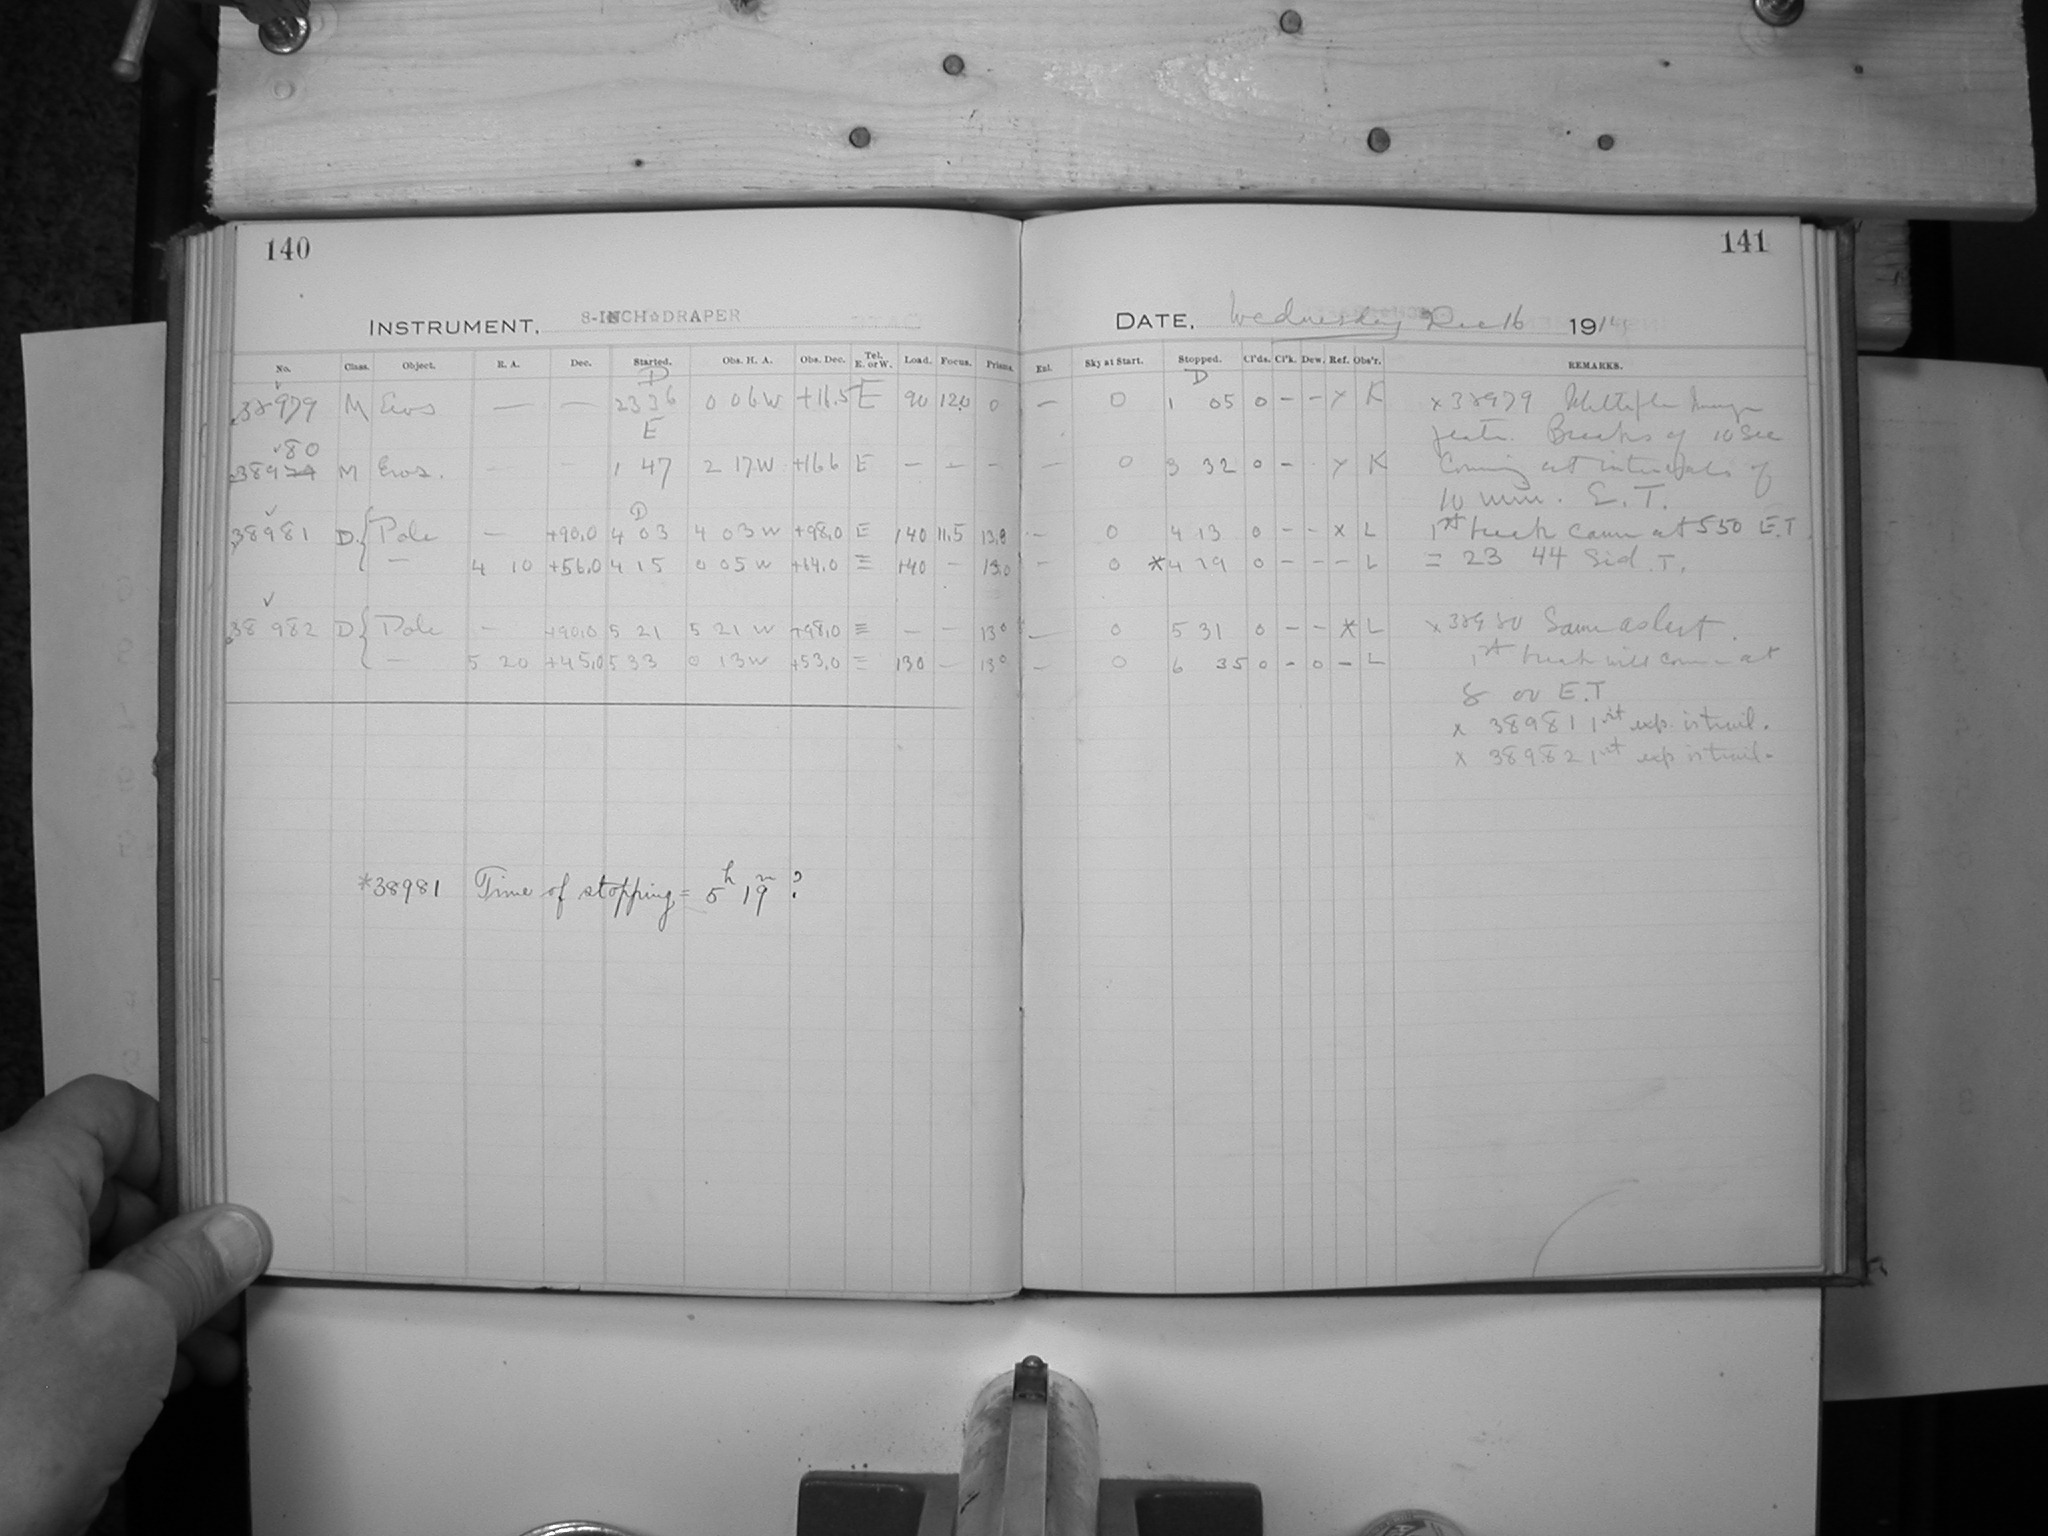 140
141
INSTRUMENT, 8-INCH DRAPER
DATE, Wednesday Dec 16 1914
No. Class. Object. R. A. Dec. Started. Obs. H. A. Obs. Dec. Tel. E. or W. Load. Focus. Prisms.
Enl. Sky at Start. Stopped. Cl'ds. Cl'k. Dew. Ref. Obs'r. REMARKS.
D
D
38979 M Eros — — 23 36 0 06W +16.5 E 90 12.0 0 — 0 1 05 0 - - x K x 38979 Multiple
E
Breaks of 10 Sec
80
38979 M Eros. — — 1 47 2 17W +16.6 E — — — — 0 3 32 0 - x K Coming at intervals of
10 min. E.T.
D
38981 D { Pole — +90.0 4 03 4 03W +98.0 E 140 11.5 13.0 — 0 4 13 0 - - x L 1st break came at 5 50 E.T.
— 4 10 +56.0 4 15 0 05W +64.0 = 140 — 13.0 — 0 *4 19 0 - - - L = 23 44 Sid. T.
38982 D { Pole — +90.0 5 21 5 21W +98.0 = — — 130 — 0 5 31 0 - - * L x 38980 Same as last.
1st break will come at
— 5 20 +45.0 5 33 0 13W +53.0 = 130 — 130 — 0 6 35 0 - 0 - L
8 00 E.T
x 38981 1st exp. is trail.
x 38982 1st exp is trail.
*38981 Time of stopping = 5h 19m ?